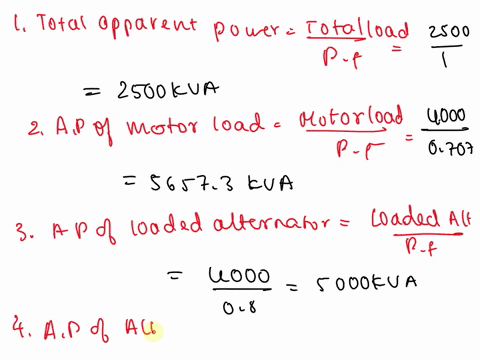 1. Total apparent power = Total load / P.f = 2500 / 1
= 2500 KVA
2. A.P of motor load = Motor load / P.f = 4000 / 0.707
= 5657.3 KVA
3. A P of loaded alternator = Loaded Alt / P.f
= 4000 / 0.8 = 5000 KVA
4. A.P of Alt